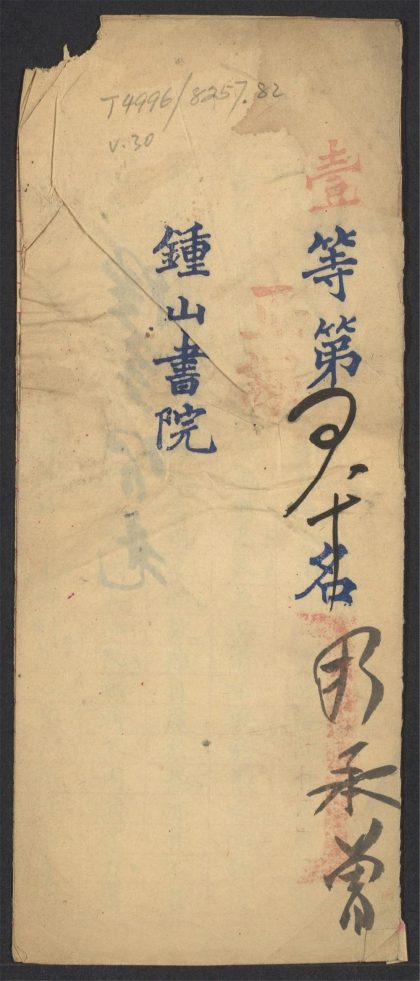 T4996/8257.82
v.30
壹等第四十名 承曾
鍾山書院